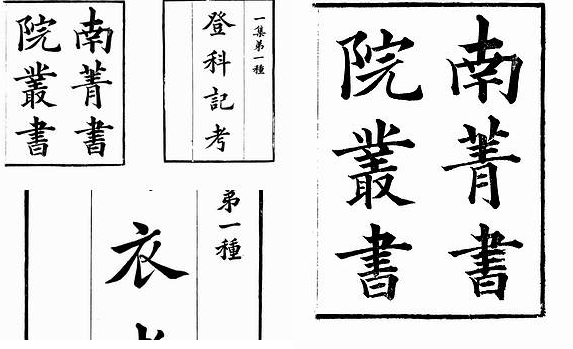 南菁書
院叢書
一集弟一種
登科記考
弟一種
衣
南菁書
院叢書